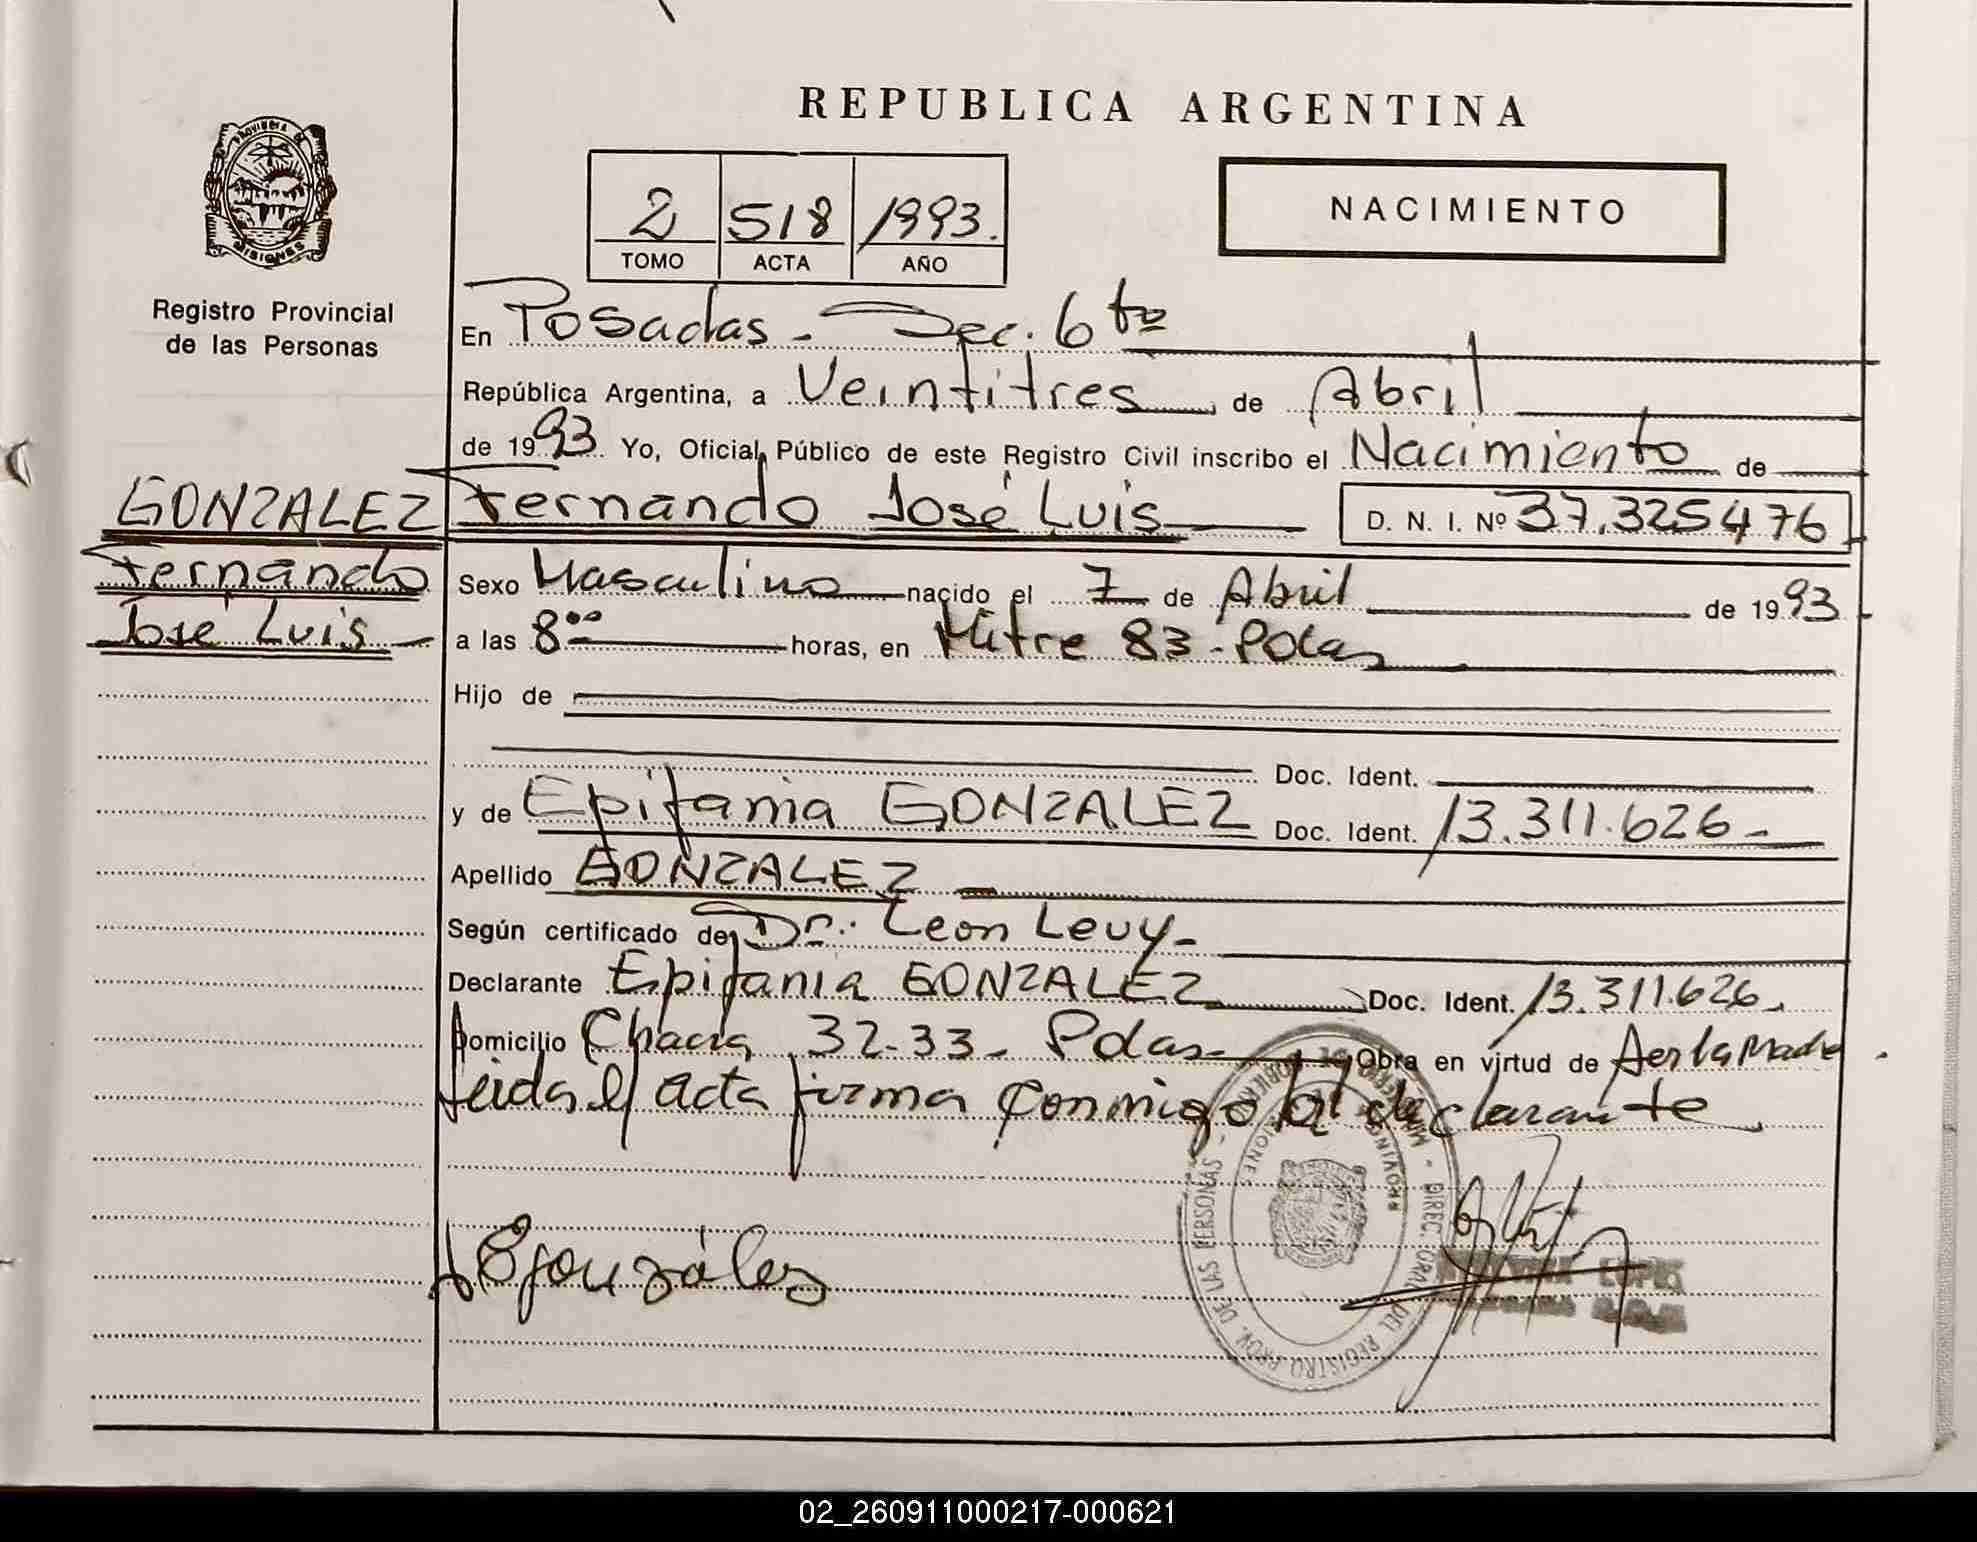 REPUBLICA ARGENTINA
PROVINCIA DE MISIONES
Registro Provincial
de las Personas
NACIMIENTO
2 518 1993.
TOMO ACTA AÑO
En Posadas - Sec. 6to
República Argentina, a Veintitres de Abril
de 1993. Yo, Oficial Público de este Registro Civil inscribo el Nacimiento de
GONZALEZ Fernando José Luis D. N. I. Nº 37.325476
Fernando
José Luis
Sexo Masculino nacido el 7 de Abril de 1993
a las 8ºº horas, en Mitre 83 - Pdas
Hijo de
Doc. Ident.
y de Epifania GONZALEZ Doc. Ident. 13.311.626 -
Apellido GONZALEZ
Según certificado de Dr. Leon Levy -
Declarante Epifania GONZALEZ Doc. Ident. 13.311.626.
Domicilio Chacra 32-33 - Pdas - Obra en virtud de ser la Madre.
Leida el acta firma conmigo la declarante
EGonzáles
LOPEZ
DIREC. GRAL. DEL REGISTRO PROV. DE LAS PERSONAS -
02_260911000217-000621